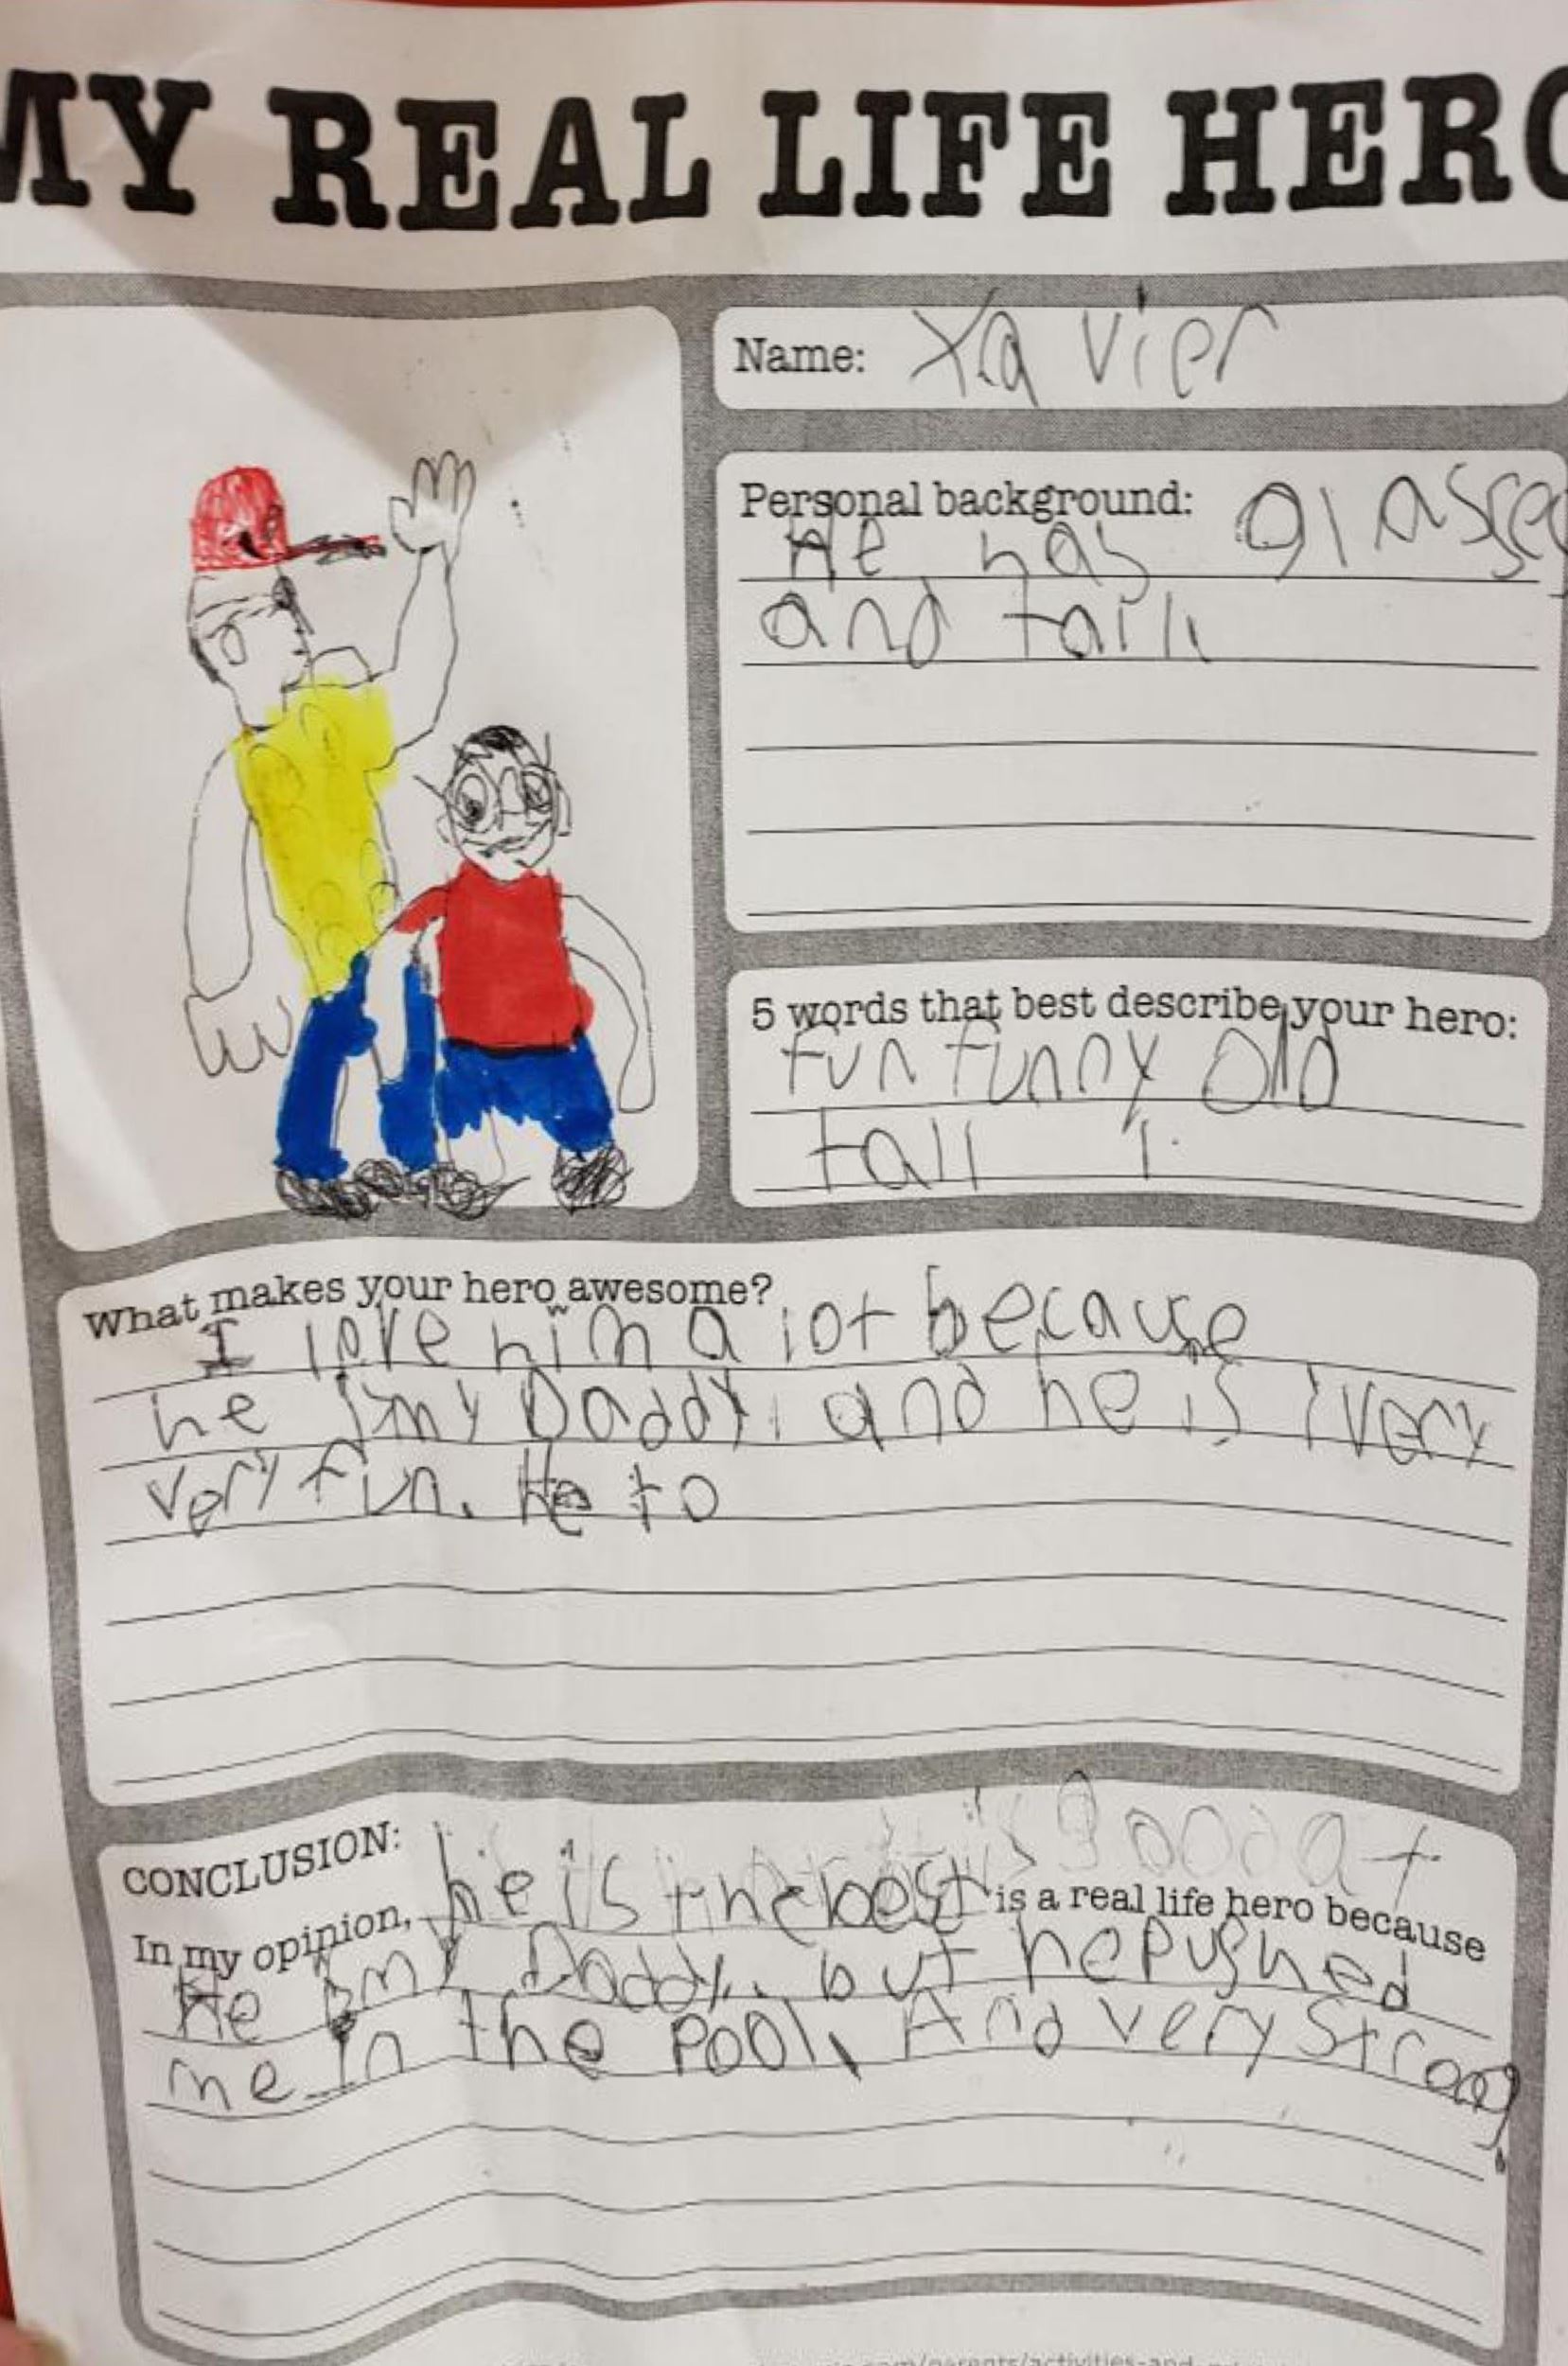 MY REAL LIFE HERO
Name: Xavier
Personal background: glasses
He has
and
5 words that best describe your hero:
fun funny Old
tall
What makes your hero awesome?
I love him a lot because
he my Daddy. and he is very
very fun. He to
CONCLUSION:
is good at
In my opinion, he is the best is a real life hero because
He my Daddy. but he pushed
me in the pool. And very strong.